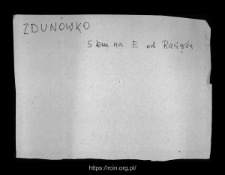 ZDUNÓWKO
5 km na E od Raciąża
https://rcin.org.pl/